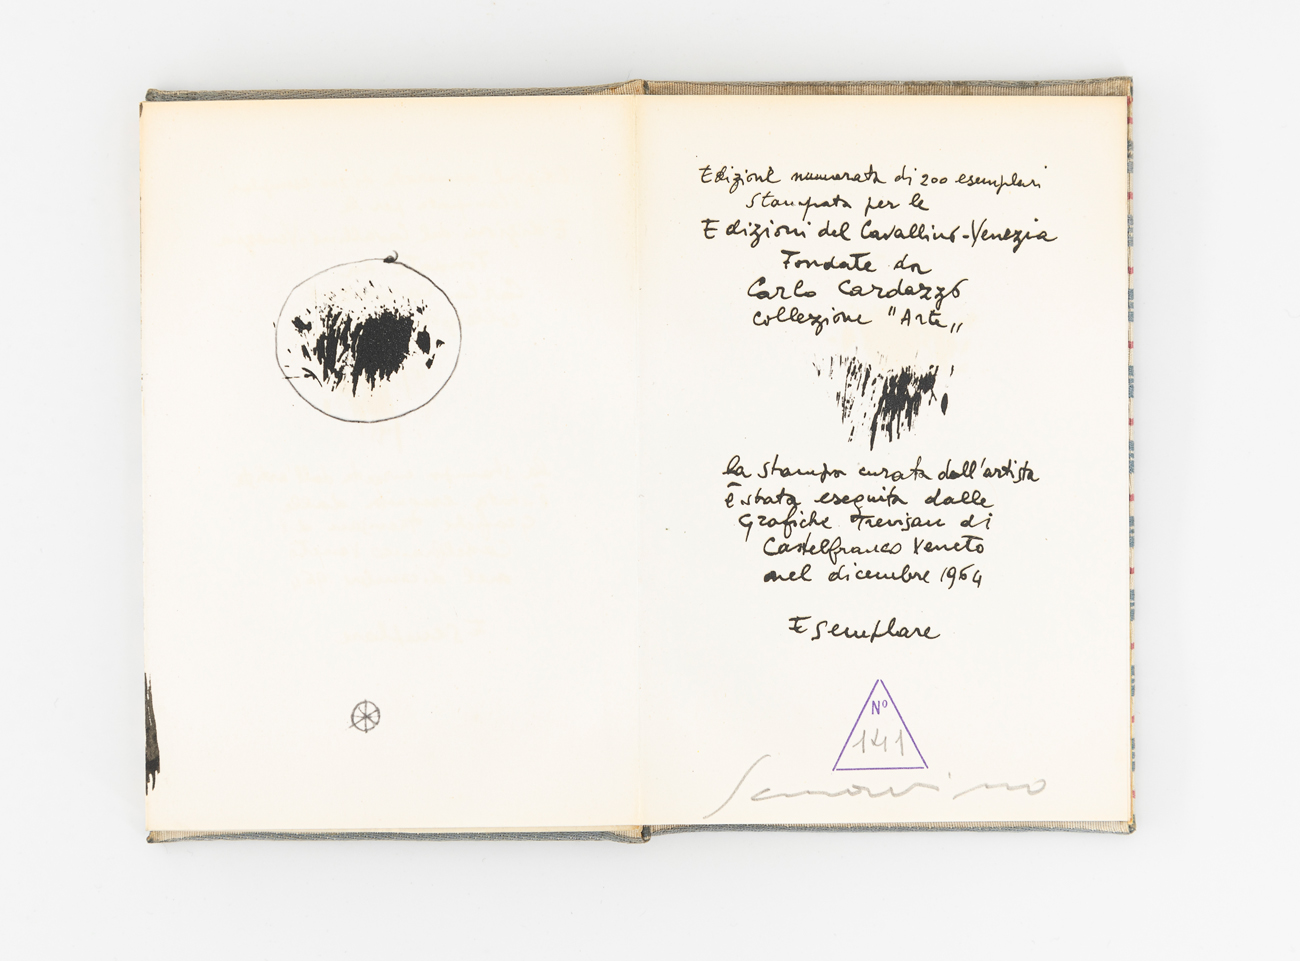 Edizione numerata di 200 esemplari
Stampata per le
Edizioni del Cavallino-Venezia
Fondate da
Carlo Cardazzo
collezione "Arte„
la stampa curata dall'artista
è stata eseguita dalle
Grafiche Trevisan di
Castelfranco Veneto
nel dicembre 1964
Esemplare
No
141